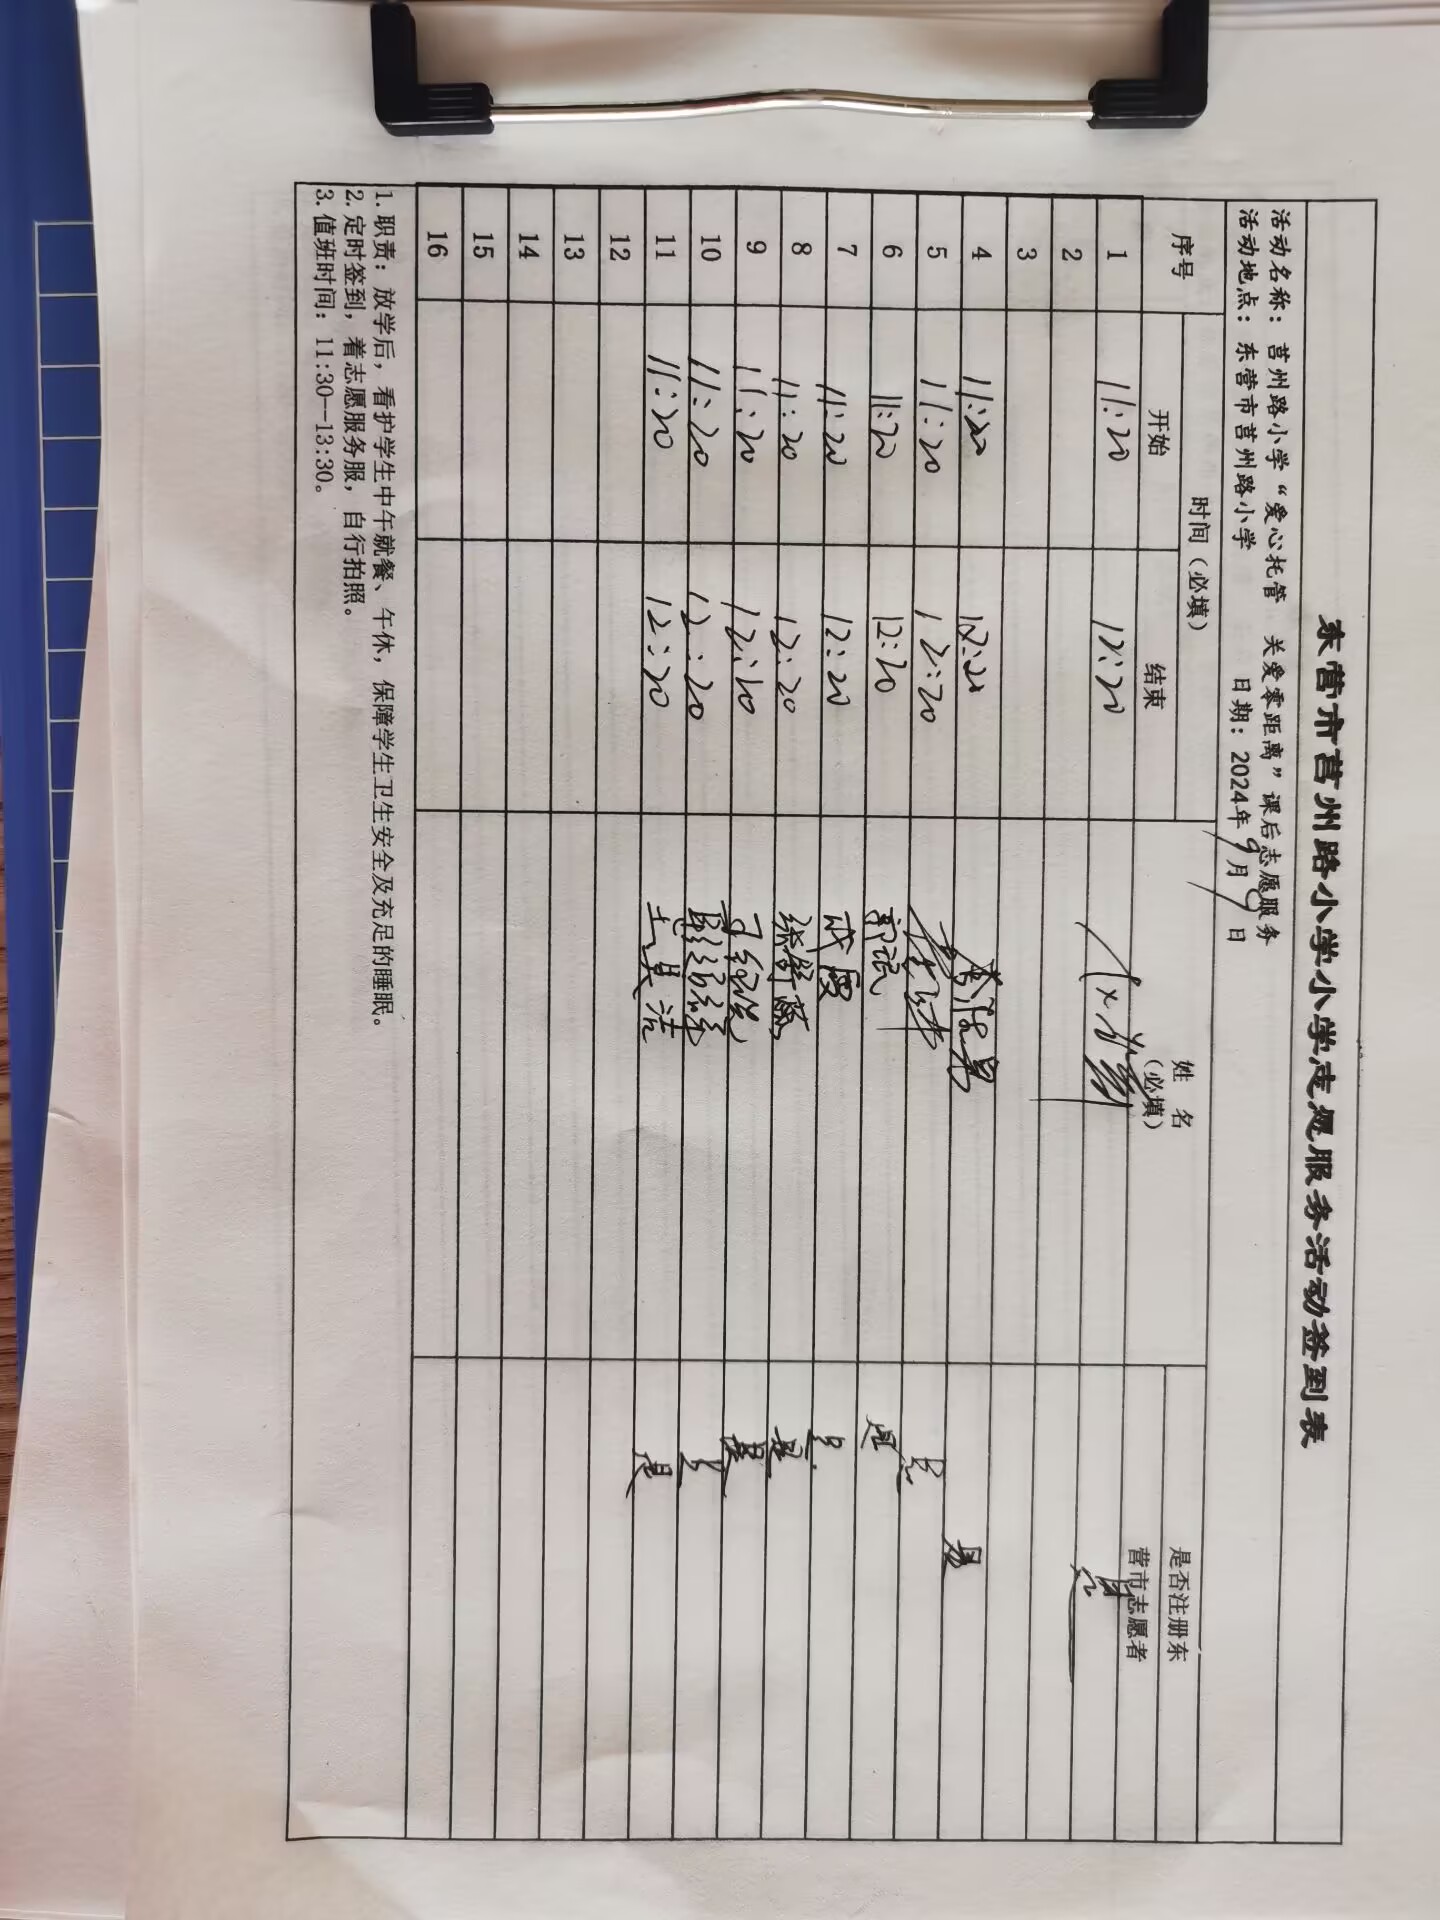 东营市莒州路小学小学志愿服务活动签到表
活动名称：莒州路小学“爱心托管 关爱零距离”课后志愿服务
活动地点：东营市莒州路小学 日期：2024年9月9日
序号 时间（必填） 姓名（必填） 是否注册东营市志愿者
开始 结束
1 11:20 12:20 是
2
3
4 11:20 12:20 是
5 11:20 12:20 是
6 11:20 12:20 郭泯 是
7 11:20 12:20 是
8 11:20 12:20 是
9 11:20 12:20 是
10 11:20 12:20 是
11 11:20 12:20 是
12
13
14
15
16
1.职责：放学后，看护学生中午就餐、午休，保障学生卫生安全及充足的睡眠。
2.定时签到，着志愿服务服，自行拍照。
3.值班时间：11:30--13:30。